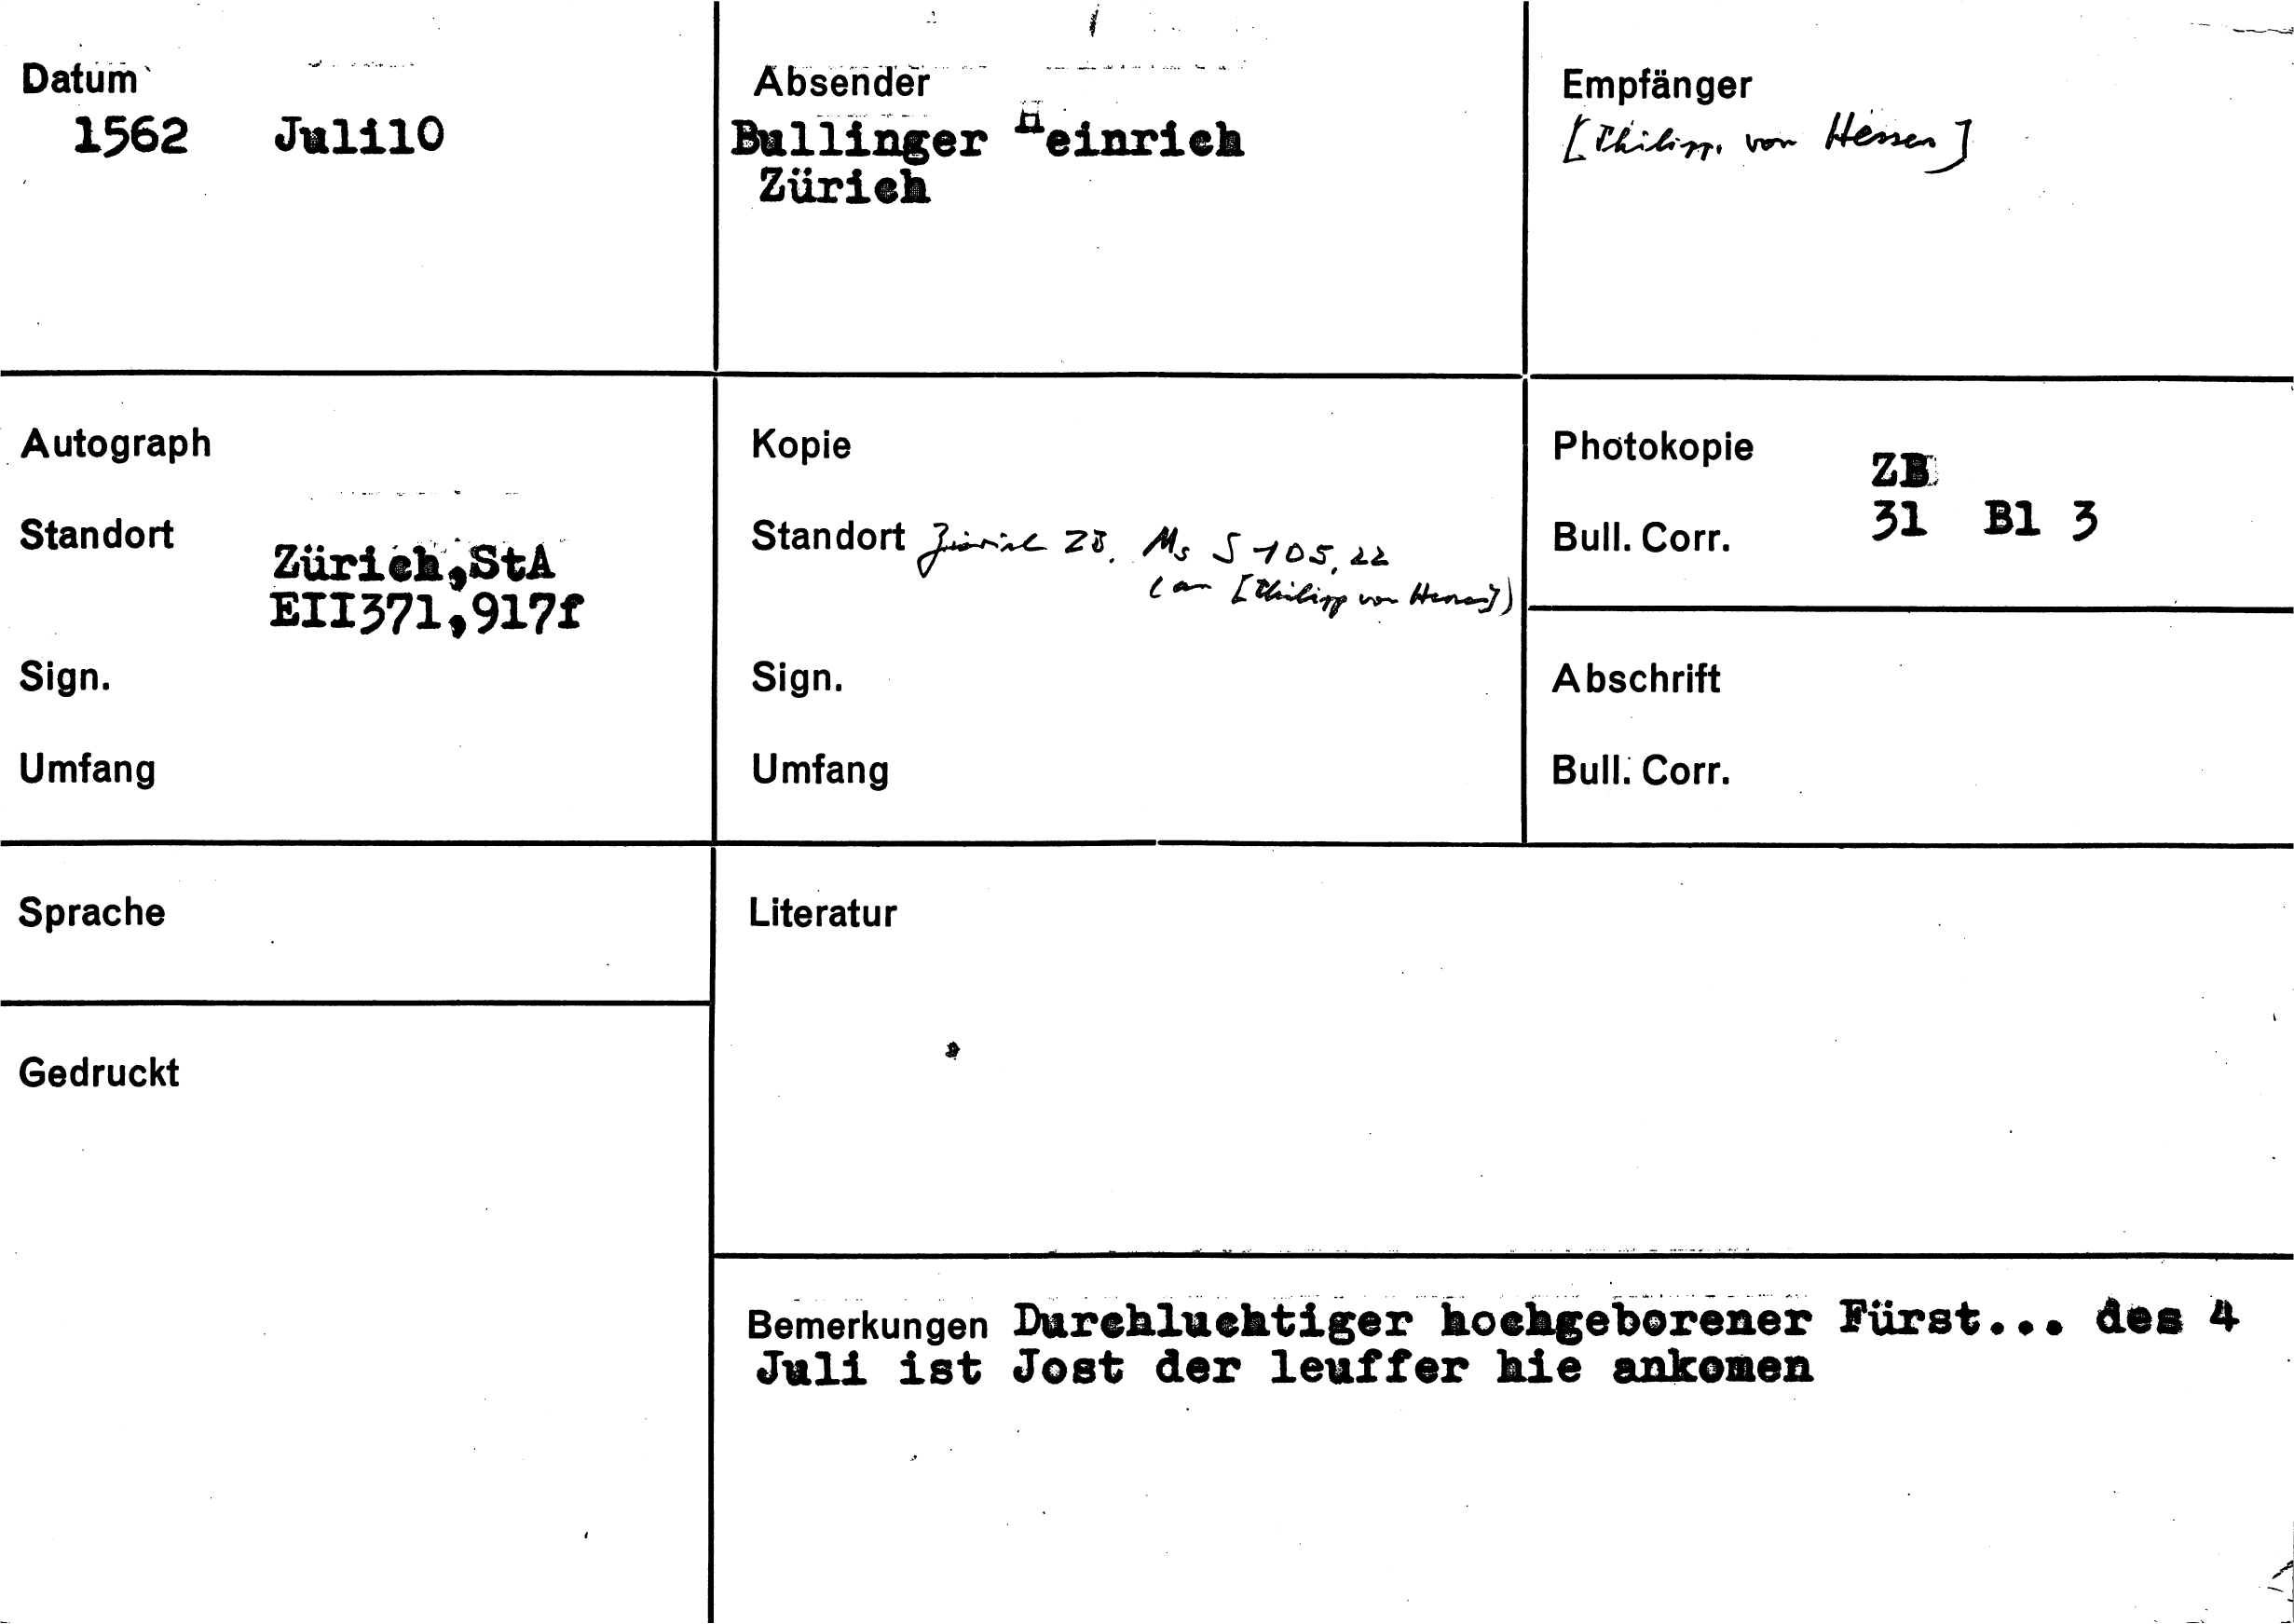 Datum
1562 Juli10
Absender
Bullinger Heinrich
Zürich
Empfänger
[Philipp. von Hessen]
Autograph
Standort
Zürich,StA
EII371,917f
Sign.
Umfang
Kopie
Standort Zürich ZB. Ms S 105,22
(an [Philipp von Hessen])
Sign.
Umfang
Photokopie
ZB
Bull. Corr.
31 Bl 3
Abschrift
Bull. Corr.
Sprache
Gedruckt
Literatur
Bemerkungen Durchluchtiger hochgeborener Fürst... des 4
Juli ist Jost der leuffer hie ankomen